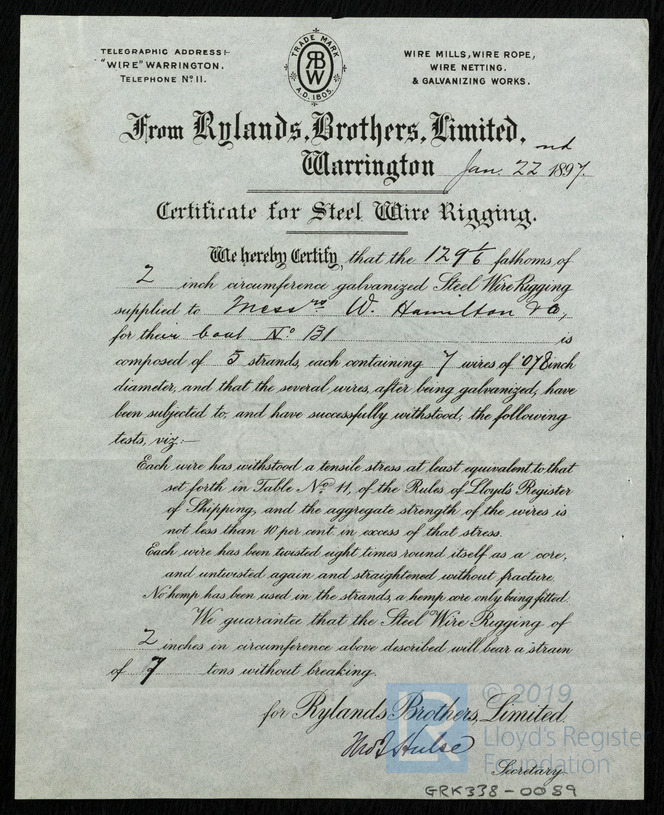 TELEGRAPHIC ADDRESS:-
"WIRE" WARRINGTON.
TELEPHONE No 11.
TRADE MARK
RB
W
A.D. 1805.
WIRE MILLS, WIRE ROPE,
WIRE NETTING.
& GALVANIZING WORKS.
From Rylands, Brothers, Limited,
Warrington Jan. 22nd 1897.
Certificate for Steel Wire Rigging.
We hereby Certify, that the fathoms, of
2 inch circumference galvanized Steel Wire Rigging
supplied to Messrs W. Hamilton & Co,
for their boat No 131 is
composed of 5 strands, each containing 7 wires of .078 inch
diameter, and that the several wires, after being galvanized, have
been subjected to, and have successfully withstood, the following
tests, viz:—
Each wire has withstood a tensile stress at least equivalent to that
set forth in Table No 11, of the Rules of Lloyd's Register
of Shipping, and the aggregate strength of the wires is
not less than 10 per cent in excess of that stress.
Each wire has been twisted eight times round itself as a core,
and untwisted again and straightened without fracture.
No hemp has been used in the strands, a hemp core only being fitted.
We guarantee that the Steel Wire Rigging of
2 inches in circumference above described will bear a strain
of 7 tons without breaking.
for Rylands Brothers, Limited.
Hulse
Secretary
© 2019
LR
Lloyd's Register
Foundation
GRK338-0089